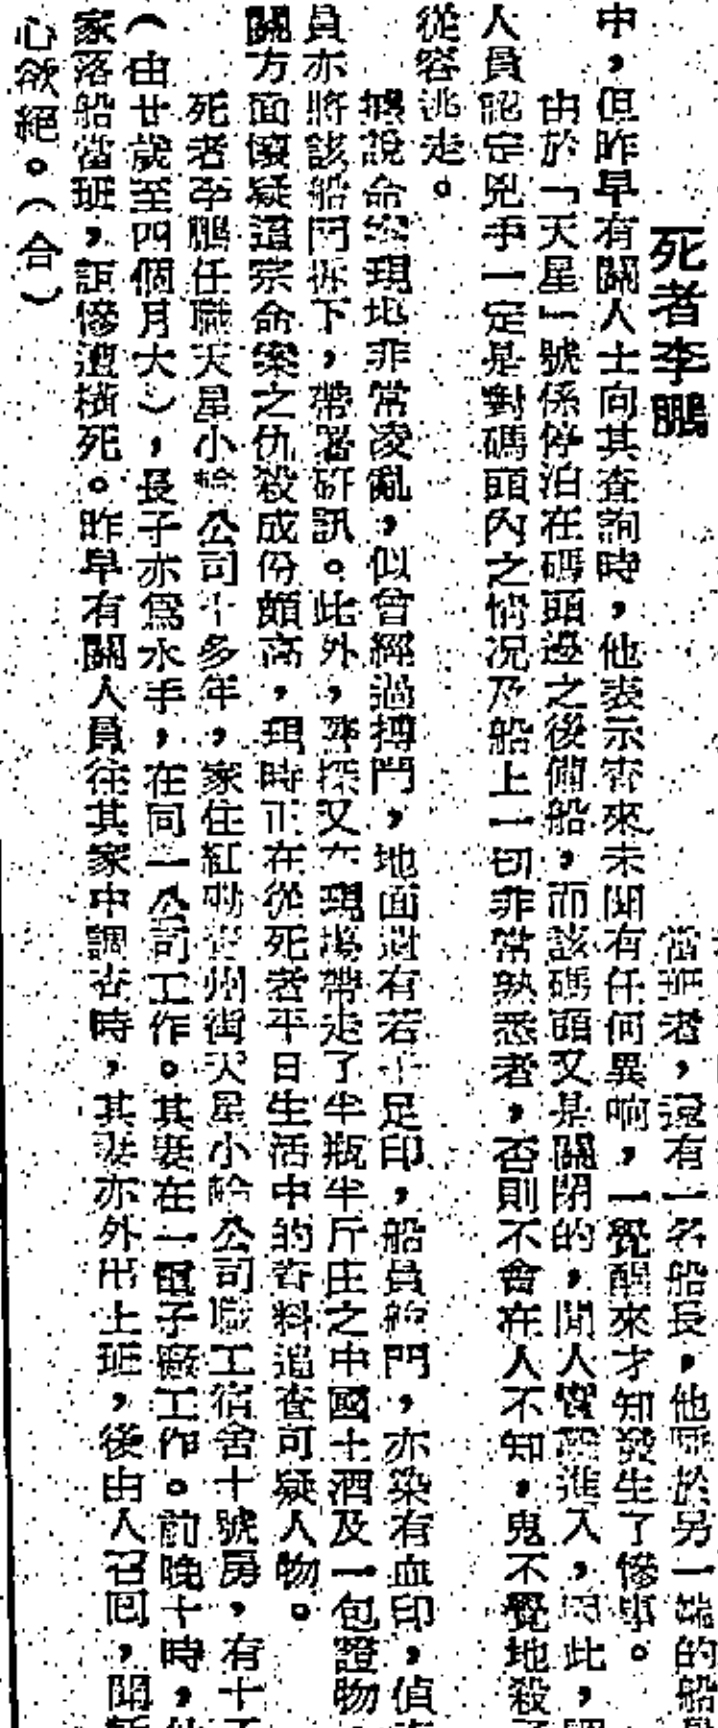 死者李鵬
當班者，還有一名船長，他匿於另一端的船
中，但昨早有關人士向其查詢時，他表示睡來未聞有任何異响，一覺醒來才知發生了慘事。
由於「天星」號係停泊在碼頭邊之後備船，而該碼頭又是關閉的，閒人實難進入，因此，
人員認定兇手一定是對碼頭內之情况及船上一切非常熟悉者，否則不會在人不知，鬼不覺地殺了
從容逃走。
據說命案現地非常凌亂，似曾經過搏鬥，地面遺有若干足印，船員艙門，亦染有血印，偵
員亦將該船門拆下，帶署研訊。此外，幹探又在現場帶走了半瓶半斤庄之中國土酒及一包證物，
關方面懷疑這宗命案之仇殺成份頗高，現時正在從死者平日生活中的資料追查可疑人物。
死者李鵬任職天星小輪公司十多年，家住紅磡 州街天星小輪公司職工宿舍十號房，有十子
（由廿歲至四個月大），長子亦為水手，在同一公司工作。其妻在一電子廠工作。前晚十時，
家落船當班，詎慘遭橫死。昨早有關人員往其家中調查時，其妻亦外出上班，後由人召回，聞
心欲絕。（合）